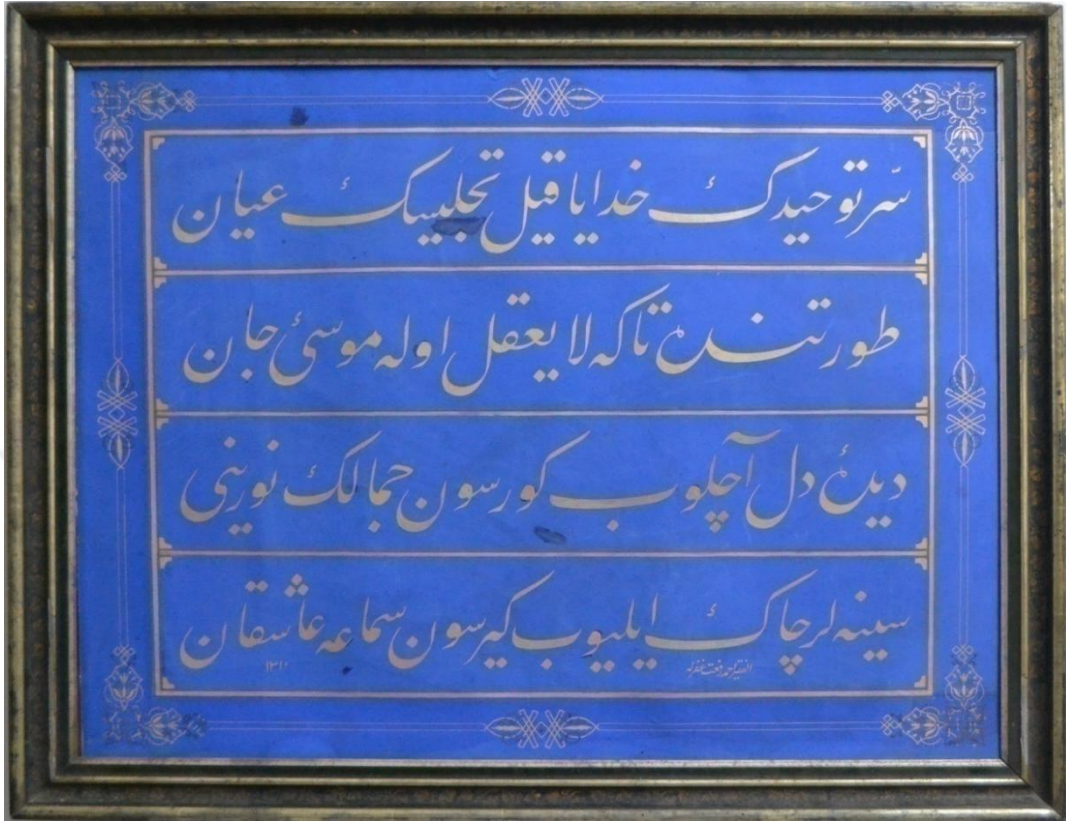 سرّ توحيدك خدايا قيل تجليسيك عيان
طور تنده تاكه لا يعقل اوله موسئ جان
ديدۀ دل آچلوب كورسون جمالك نورينى
سينه لر چاك ايليوب كيرسون سماعه عاشقان
الفقير احمد رفعت غفر له
١٣١٠